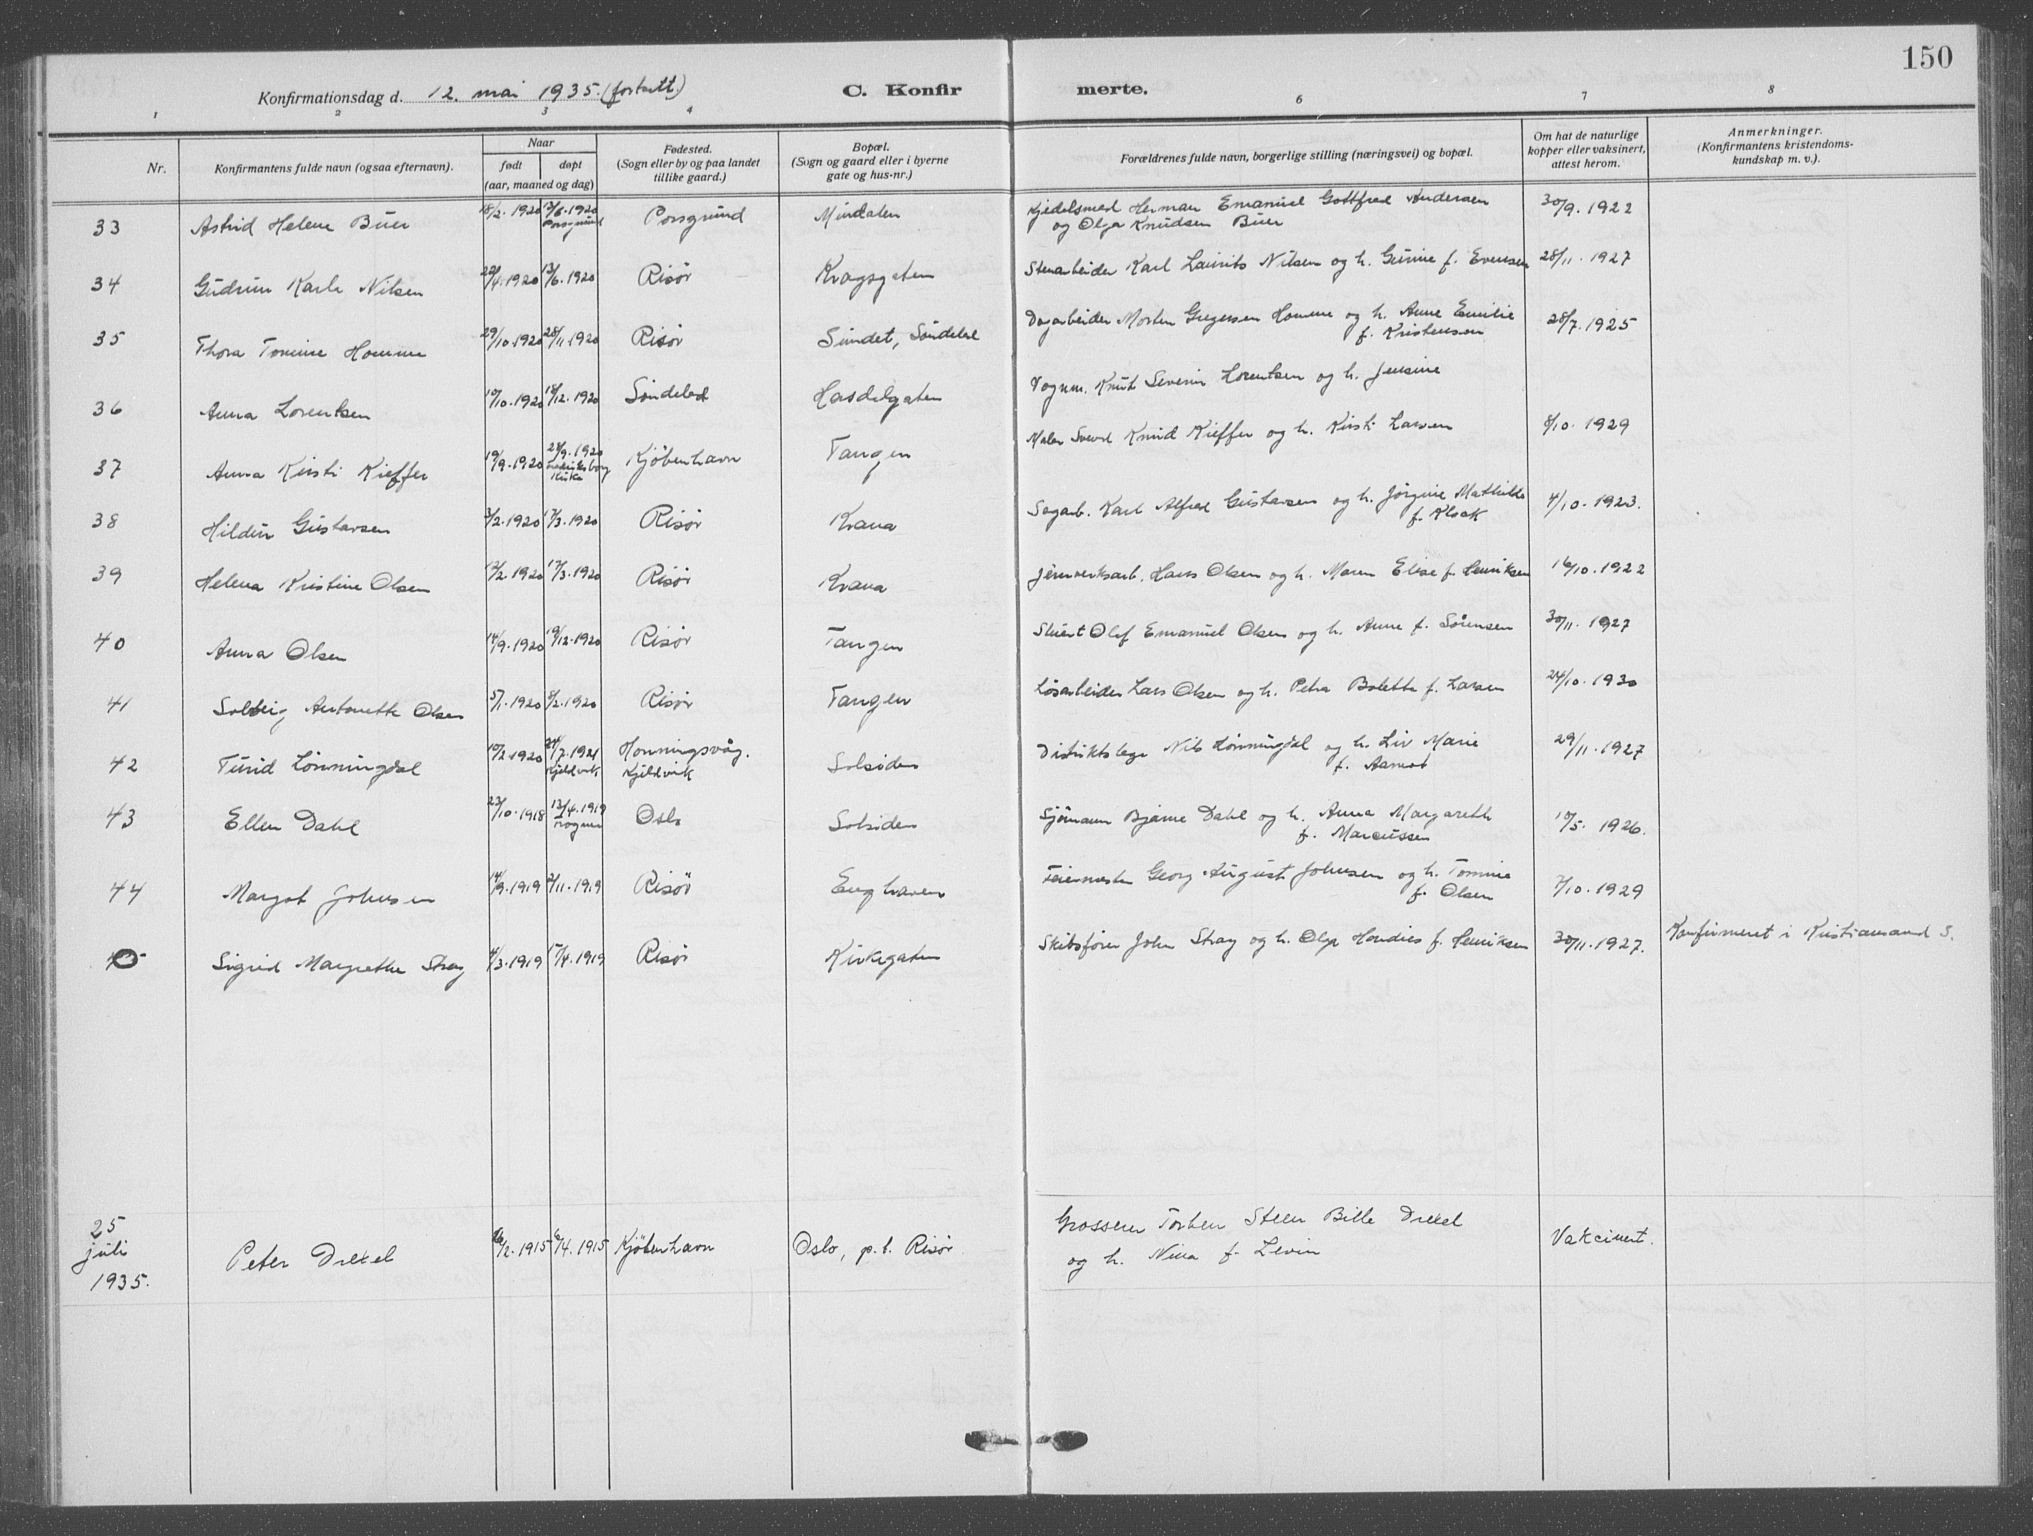 150
Konfirmationsdag d. 12. mai 1935. (fortsatt) C. Konfirmerte.
1 2 3 4 6 7 8
Nr.
Konfirmantens fulde navn (ogsaa efternavn).
Naar
født døpt
(aar, maaned og dag)
Fødested.
(Sogn eller by og paa landet
tillike gaard.)
Bopæl.
(Sogn og gaard eller i byerne
gate og hus-nr.)
Forældrenes fulde navn, borgerlige stilling (næringsvei) og bopæl.
Om hat de naturlige
kopper eller vaksinert,
attest herom.
Anmerkninger.
(Konfirmantens kristendoms-
kundskap m. v.).
33 Astrid Helene Buer 18/2. 1920 13/6. 1920 Porsgrund Porsgrund Mindalen Kjedelsmed Herman Emanuel Gottfred Andersen 30/9. 1922
og Olga Knudsen Buer
34 Gudrun Karla Nilsen 22/4. 1920 13/6. 1920 Risør Kragsgaten Stenarbeider Karl Laurits Nilsen og h. Gunne f. Evensen 28/11. 1927
35 Thora Tomine Homme 29/10. 1920 28/11. 1920 Risør Sundet, Søndeled Dagarbeider Morten Gregersen Homme og h. Anne Emilie 28/7. 1925
f. Kristensen
36 Anna Lorentsen 10/10. 1920 18/12. 1920 Søndeled Hasdalgaten Vognm. Knut Severin Lorentsen og h. Jensine
37 Anna Kirsti Kieffer 19/9. 1920 28/9. 1920 Fredriksborg Kirke Kjøbenhavn Tangen Maler Svend Knud Kieffer og h. Kirsti Larsen 8/10. 1929
38 Hildur Gustavsen 3/2. 1920 17/3. 1920 Risør Krana Sagarb. Karl Alfred Gustavsen og h. Jørgine Mathilde 4/10. 1923.
f. Klock
39 Helena Kristine Olsen 12/2. 1920 17/3. 1920 Risør Krana Jernverksarb. Hans Olsen og h. Maren Elise f. Henriksen 16/10. 1922
40 Anna Olsen 14/9. 1920 19/12. 1920 Risør Tangen Stuert Olaf Emanuel Olsen og h. Anne f. Sørensen 30/11. 1927
41 Solveig Antonette Olsen 5/1. 1920 8/2. 1920 Risør Tangen Løsarbeider Lars Olsen og h. Petra Bolette f. Larsen 24/10. 1930
42 Turid Lønningdal 10/2. 1920 24/7. 1921 Kjeldvik Honningsvåg. Kjeldvik Solsiden Distriktslege Nils Lønningdal og h. Liv Marie 29/11. 1927
f. Aamot
43 Ellen Dahl 23/10. 1918 13/4. 1919 Frogner Oslo Solsiden Sjømann Bjarne Dahl og h. Anna Margareth 10/5. 1926.
f. Marcussen
44 Margot Johnsen 14/9. 1919 2/11. 1919 Risør Enghaven Feiermester Georg August Johnsen og h. Tomine 7/10. 1929
f. Olsen
Sigrid Margrethe Stray 4/3. 1919 15/4. 1919 Risør Kirkegaten Skibsfører John Stray og h. Olga f. Henriksen 30/11. 1927. Konfirmeret i Kristiansand S.
25
juli
1935.
Peter Drexel /2. 1915 6/4. 1915 Kjøbenhavn Oslo, p.t. Risør. Grosserer Torben Steen Bille Drexel Vakcinert.
og h. Nina f. Levin